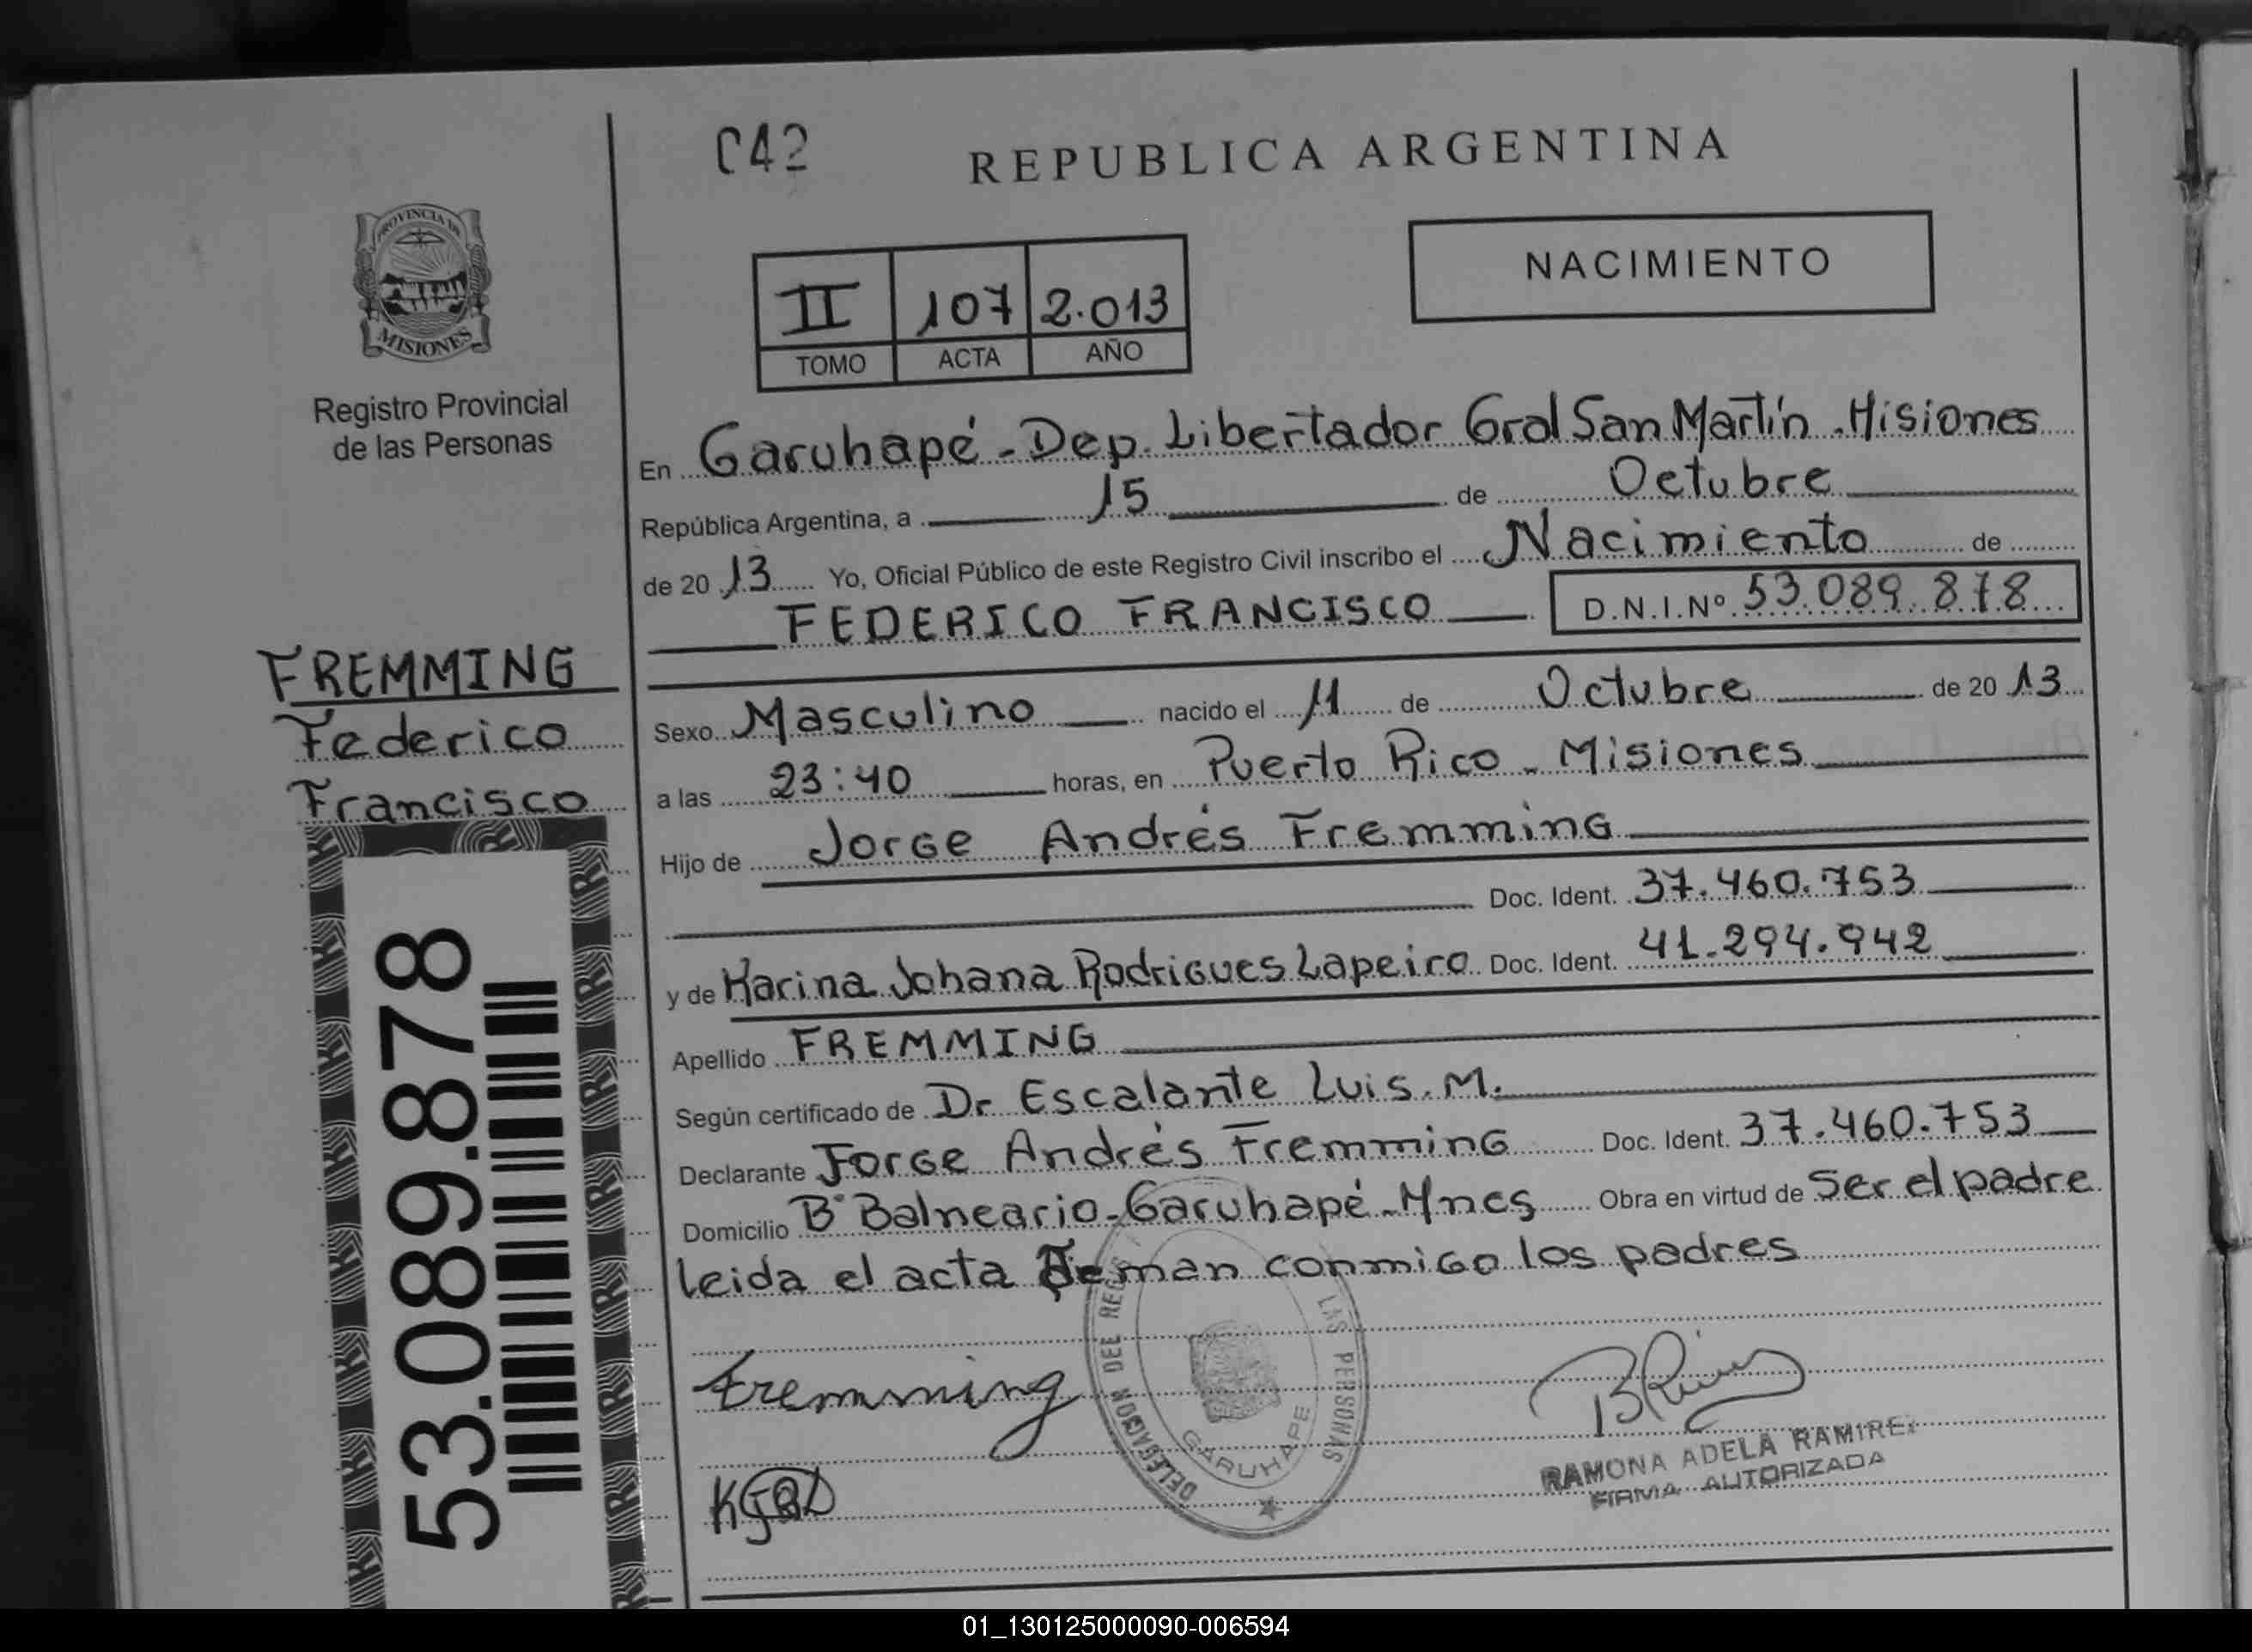 C42
REPUBLICA ARGENTINA
PROVINCIA DE
MISIONES
Registro Provincial
de las Personas
II 107 2.013
TOMO ACTA AÑO
NACIMIENTO
En Garuhapé - Dep. Libertador Gral San Martín - Misiones
República Argentina, a 15 de Octubre
de 20 13 Yo, Oficial Público de este Registro Civil inscribo el Nacimiento de
FEDERICO FRANCISCO D.N.I.Nº 53.089.878
FREMMING
Federico
Francisco
Sexo Masculino nacido el 11 de Octubre de 20 13
a las 23:40 horas, en Puerto Rico - Misiones
Hijo de Jorge Andrés Fremming
Doc. Ident. 37.460.753
y de Karina Johana Rodrigues Lapeiro Doc. Ident. 41.294.942
Apellido FREMMING
Según certificado de Dr Escalante Luis. M.
Declarante Jorge Andrés Fremming Doc. Ident. 37.460.753
Domicilio B° Balneario - Garuhapé - Mnes Obra en virtud de Ser el padre
leida el acta firman conmigo los padres
53.089.878
Fremming
DELEGACION DEL REG LAS PERSONAS
GARUHAPE
KJRL
RAMONA ADELA RAMIREZ
FIRMA AUTORIZADA
01_130125000090-006594